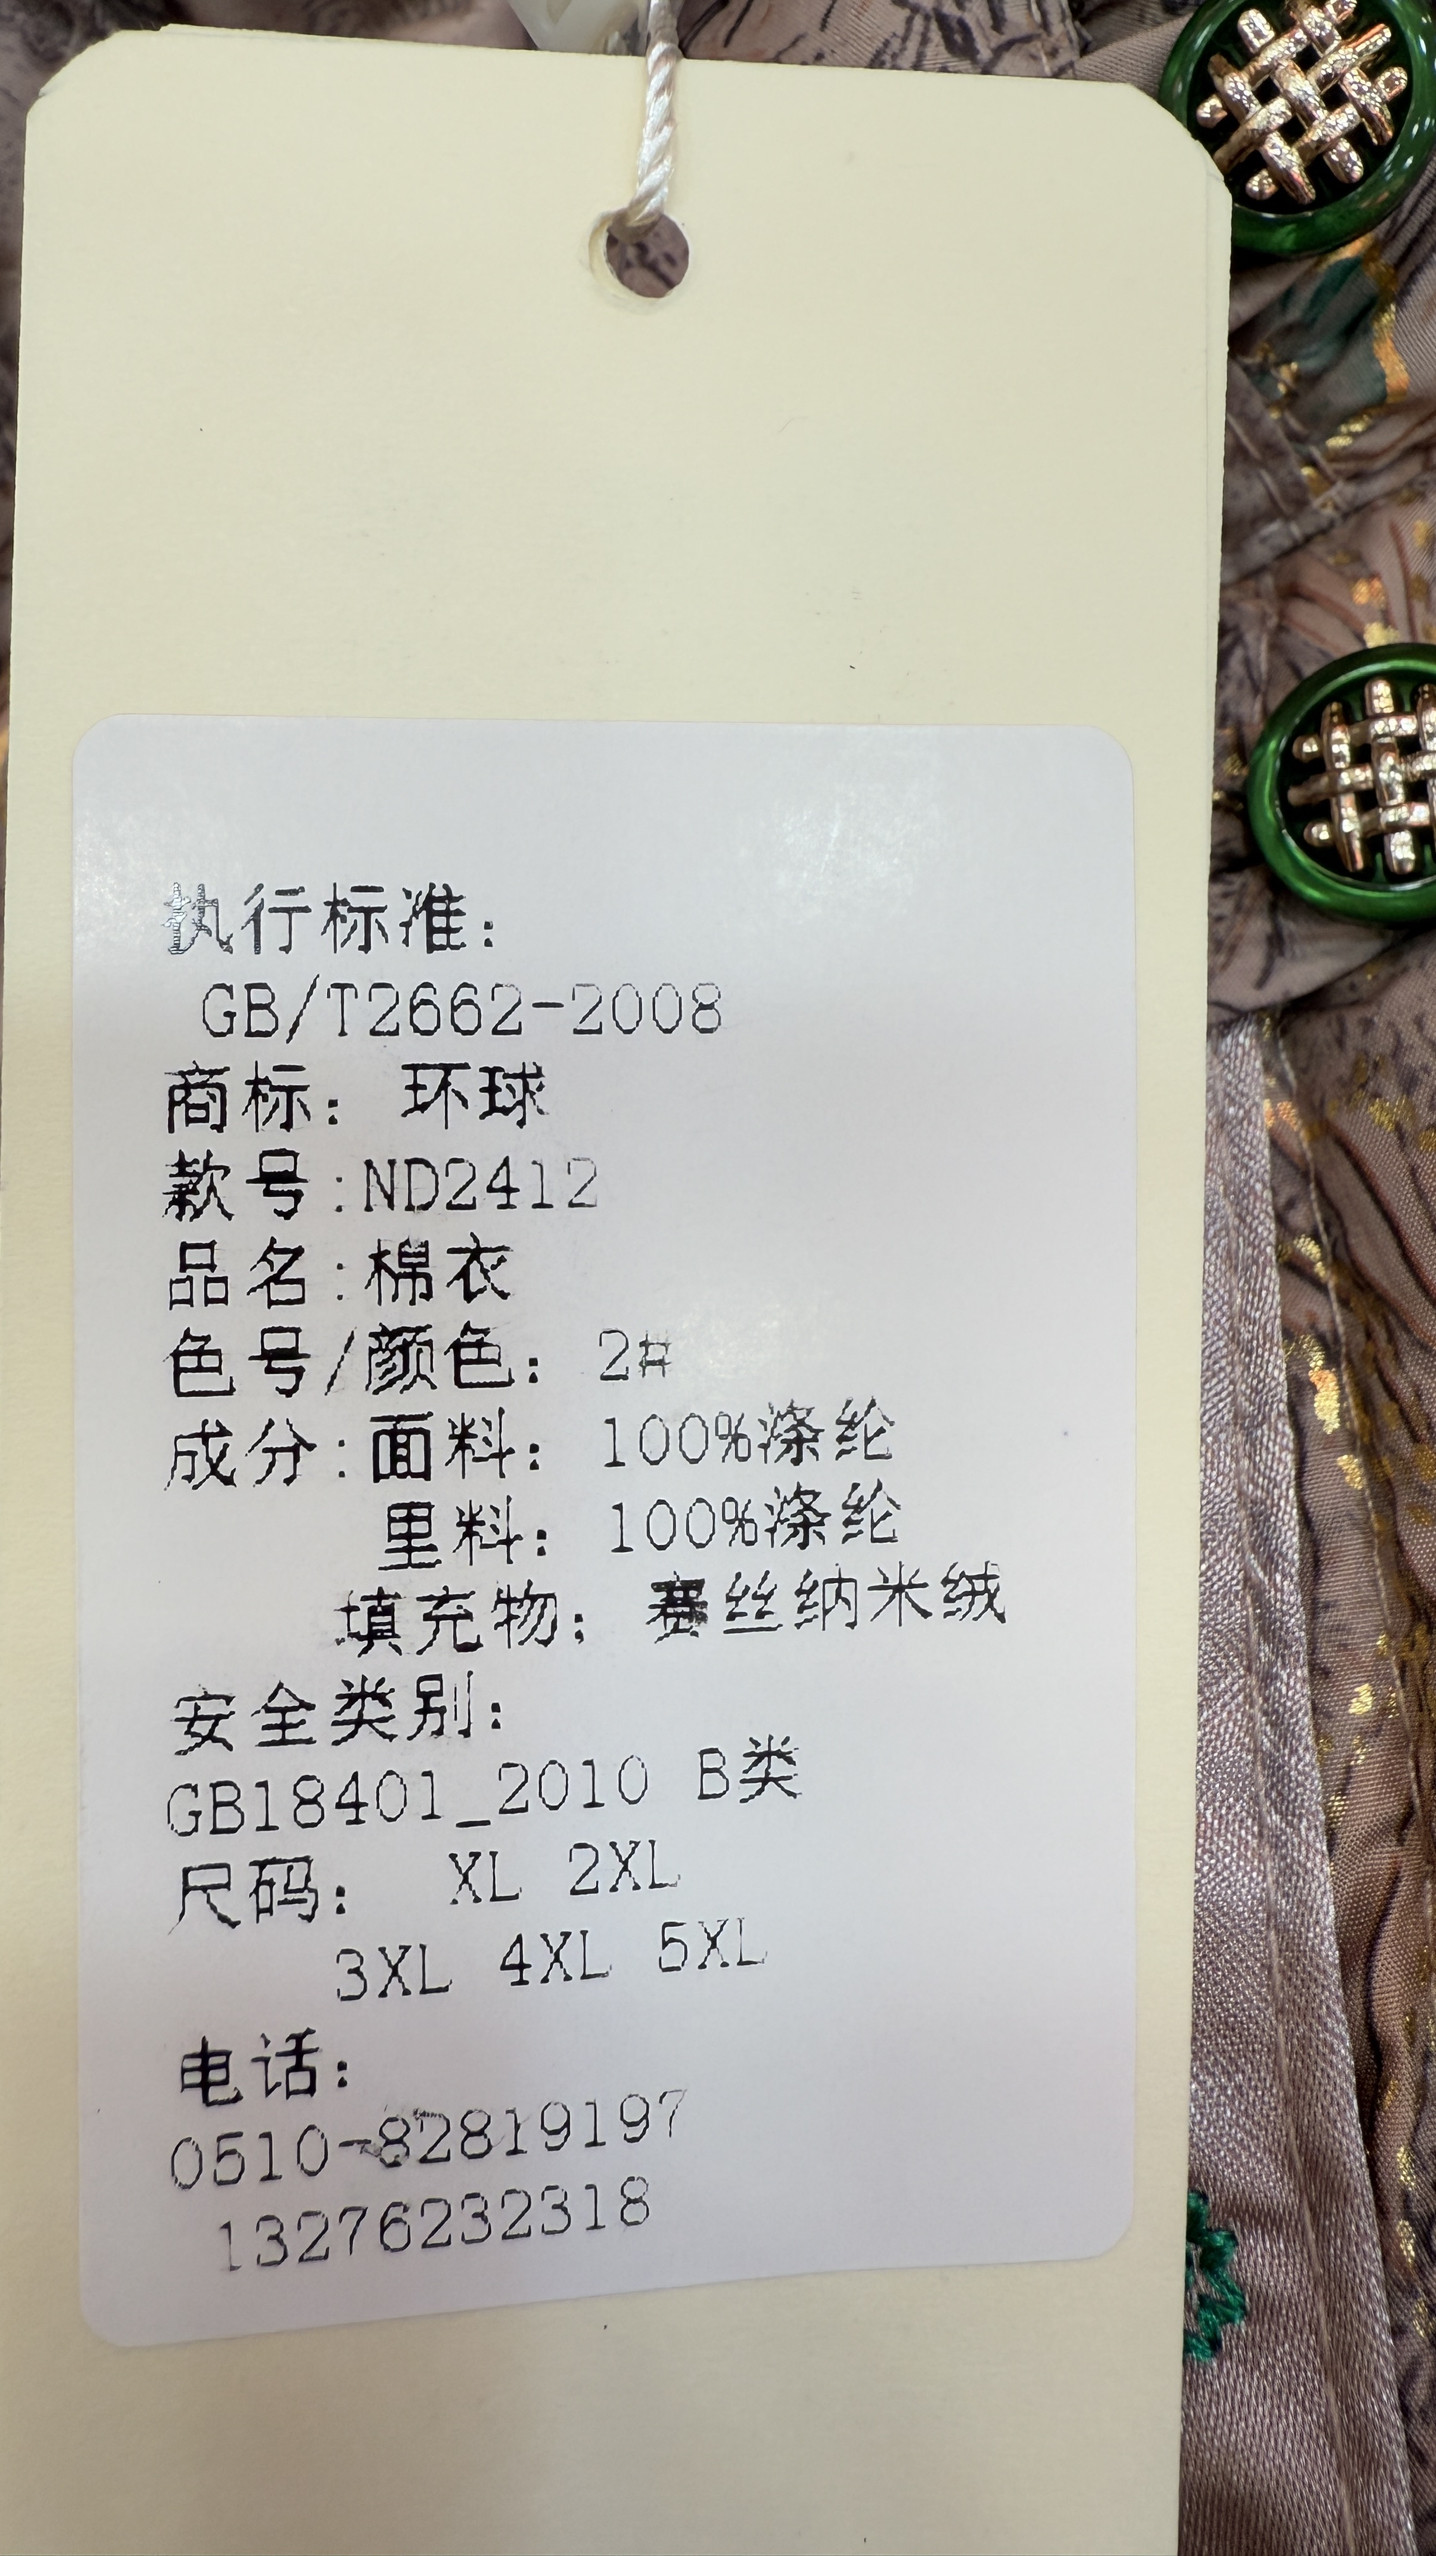 执行标准:
GB/T2662-2008
商标: 环球
款号:ND2412
品名:棉衣
色号/颜色: 2#
成分:面料: 100%涤纶
里料: 100%涤纶
填充物: 赛丝纳米绒
安全类别:
GB18401_2010 B类
尺码: XL 2XL
3XL 4XL 5XL
电话:
0510-82819197
13276232318